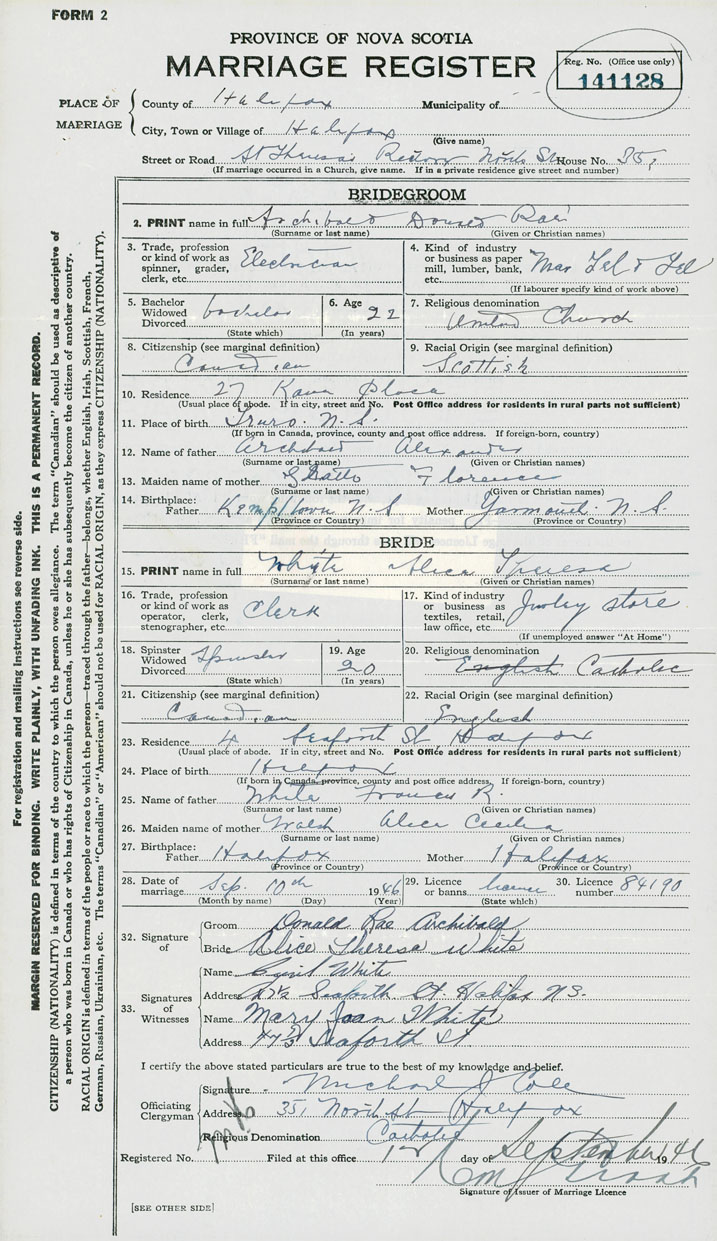 FORM 2
PROVINCE OF NOVA SCOTIA
MARRIAGE REGISTER
Reg. No. (Office use only)
141128
PLACE OF MARRIAGE
County of Halifax Municipality of
City, Town or Village of Halifax
(Give name)
Street or Road St Theresa's Rectory North St House No. 351
(If marriage occurred in a Church, give name. If in a private residence give street and number)
BRIDEGROOM
2. PRINT name in full Archibald Donald Rae
(Surname or last name) (Given or Christian names)
3. Trade, profession or kind of work as spinner, grader, clerk, etc. Electrician
4. Kind of industry or business as paper mill, lumber, bank, etc. Mar Tel & Tel
(If labourer specify kind of work above)
5. Bachelor Widowed Divorced bachelor
(State which)
6. Age 22
(In years)
7. Religious denomination United Church
8. Citizenship (see marginal definition) Canadian
9. Racial Origin (see marginal definition) Scottish
10. Residence 27 Place
(Usual place of abode. If in city, street and No. Post Office address for residents in rural parts not sufficient)
11. Place of birth Truro. N.S.
(If born in Canada, province, county and post office address. If foreign-born, country)
12. Name of father Archibald Alexander
(Surname or last name) (Given or Christian names)
13. Maiden name of mother Florence
(Surname or last name) (Given or Christian names)
14. Birthplace: Father Kemptown N.S Mother Yarmouth N.S.
(Province or Country) (Province or Country)
BRIDE
15. PRINT name in full White Alice Theresa
(Surname or last name) (Given or Christian names)
16. Trade, profession or kind of work as operator, clerk, stenographer, etc. Clerk
17. Kind of industry or business as textiles, retail, law office, etc. store
(If unemployed answer "At Home")
18. Spinster Widowed Divorced Spinster
(State which)
19. Age 20
(In years)
20. Religious denomination English Catholic
21. Citizenship (see marginal definition) Canadian
22. Racial Origin (see marginal definition) English
23. Residence 4 Seaforth St, Halifax
(Usual place of abode. If in city, street and No. Post Office address for residents in rural parts not sufficient)
24. Place of birth Halifax
(If born in Canada, province, county and post office address. If foreign-born, country)
25. Name of father White Francis R.
(Surname or last name) (Given or Christian names)
26. Maiden name of mother Walsh Alice Cecilia
(Surname or last name) (Given or Christian names)
27. Birthplace: Father Halifax Mother Halifax
(Province or Country) (Province or Country)
28. Date of marriage Sep. 10th 1946
(Month by name) (Day) (Year)
29. Licence or banns licence
(State which)
30. Licence number 84190
32. Signature of
Groom Donald Rae Archibald
Bride Alice Theresa White
33. Signatures of Witnesses
Name Cyril White
Address Seaforth St. Halifax N.S.
Name Mary Joan White
Address Seaforth St
I certify the above stated particulars are true to the best of my knowledge and belief.
Officiating Clergyman
Signature Michael J Cole
Address 351 North St Halifax
Religious Denomination Catholic
Registered No. Filed at this office 12 day of September 1946
Signature of Issuer of Marriage Licence
[SEE OTHER SIDE]
For registration and mailing instructions see reverse side.
MARGIN RESERVED FOR BINDING. WRITE PLAINLY, WITH UNFADING INK. THIS IS A PERMANENT RECORD.
CITIZENSHIP (NATIONALITY) is defined in terms of the country to which the person owes allegiance. The term "Canadian" should be used as descriptive of
a person who was born in Canada or who has rights of Citizenship in Canada, unless he or she has subsequently become the citizen of another country.
RACIAL ORIGIN is defined in terms of the people or race to which the person—traced through the father—belongs, whether English, Irish, Scottish, French,
German, Russian, Ukrainian, etc. The terms "Canadian" or "American" should not be used for RACIAL ORIGIN, as they express CITIZENSHIP (NATIONALITY).